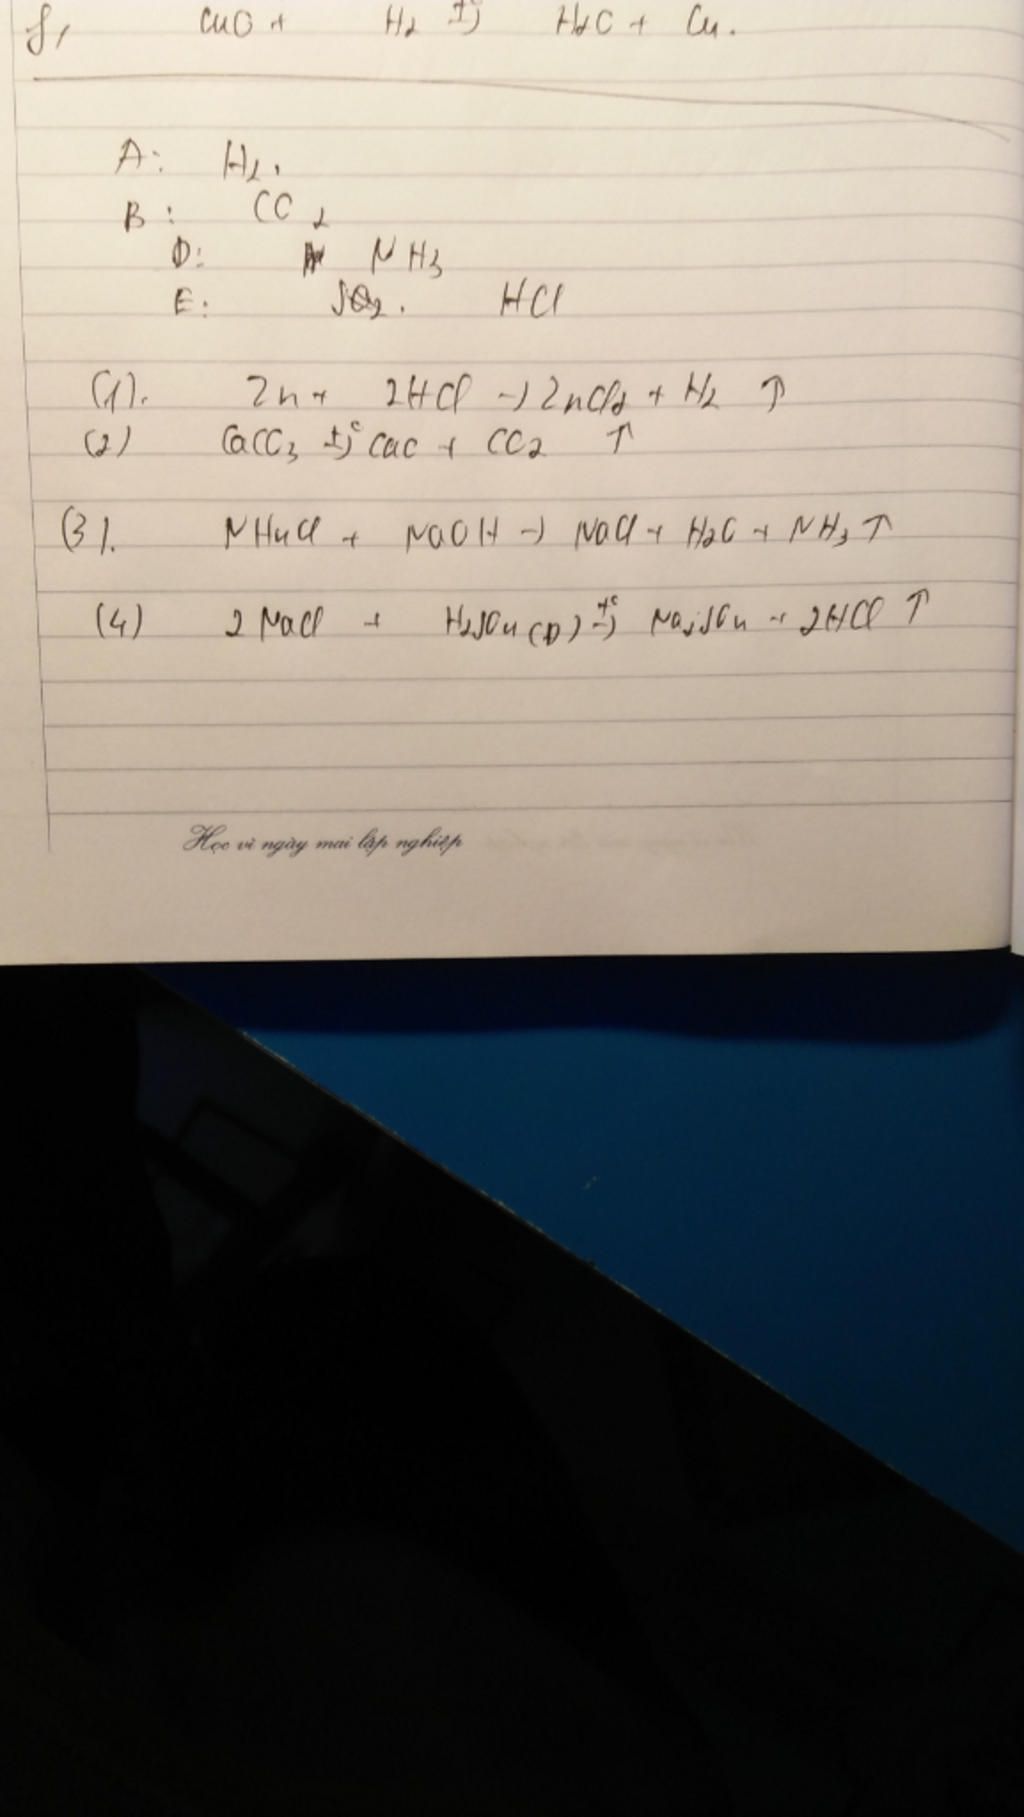 f, CuO + H2 t°→ H2O + Cu.
A: H2.
B: CO2
D: NH3
E: HCl
(1). Zn + 2HCl → ZnCl2 + H2 ↑
(2) CaCO3 t°→ CaO + CO2 ↑
(3). NH4Cl + NaOH → NaCl + H2O + NH3 ↑
(4) 2NaCl + H2SO4 (Đ) t°→ Na2SO4 + 2HCl ↑
Học vì ngày mai lập nghiệp